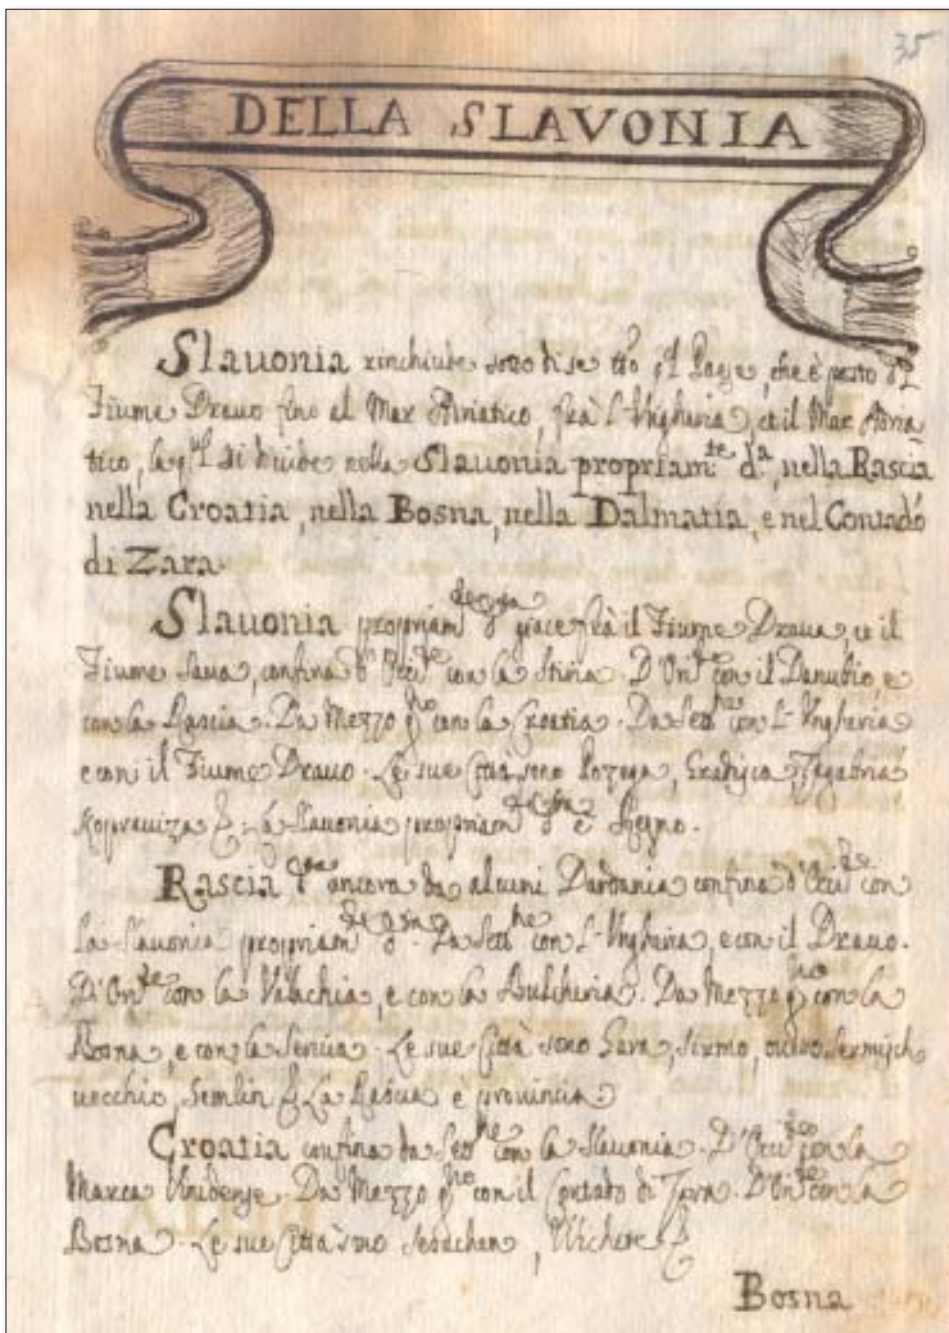 35
DELLA SLAVONIA
Slauonia rinchiude sotto di se tto ql Paese, che è posto dal
Fiume Drauo fino al Mar Adriatico, frà l'Ungheria, et il Mar Adria
tico, la qual si diuide nella Slauonia propriamte da, nella Rascia
nella Croatia, nella Bosna, nella Dalmatia, e nel Contado
di Zara.
Slauonia propriam giace frà il Fiume Draua, et il
Fiume Saua, confina d'Occite con la Stiria. D'Orite con il Danubio, e
con la Rascia. Da Mezzo gno con la Croatia. Da Sette con l'Ungheria
e con il Fiume Drauo. Le sue Città sono Pozega, Gradisca, Zagabria
Koprauiza &. La Slauonia propriam è Regno.
Rascia da ancora da alcuni Dardania confina d'Occite con
la Slauonia propriam. Da Sette con l'Ungheria, e con il Drauo.
D'Orite con la Valachia, e con la Bulcheria. Da Mezzo gno con la
Bosna, e con la Seruia. Le sue Città sono Sirmo, Sermisch
uecchio, Semlin &. La Rascia e prouincia.
Croatia confina da Sette con la Slauonia. D'Occite con la
Marca Da Mezzo gno con il Contado di Zara. D'Orite con la
Bosna. Le sue Città sono &
Bosna